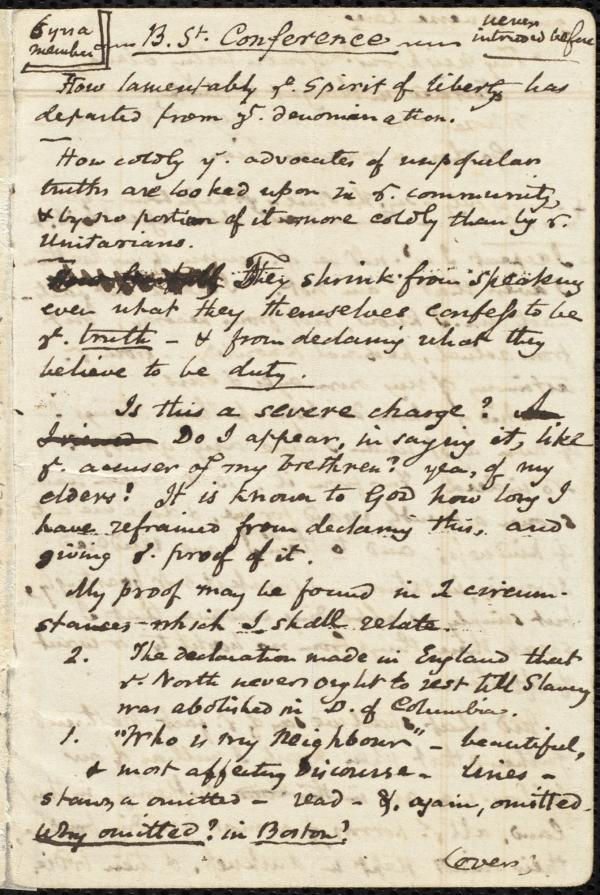 member
B. St. Conference
never
introsed before
How lamentably ye. Spirit of liberty has
departed from ye. denomination.
How coldly ye. advocates of unpopular
truths are looked upon in ye. community,
& by no portion of it more coldly than by ye.
Unitarians.
They shrink from speaking
even what they themselves confess to be
ye. truth - & from declaring what they
believe to be duty.
Is this a severe charge?
Do I appear, in saying it, like
ye. accuser of my brethren? yea, of my
elders? It is known to God how long I
have refrained from declaring this, and
giving ye. proof of it.
My proof may be found in 2 circum-
stances which I shall relate.
2. The declaration made in England that
ye. North never ought to rest till Slavery
was abolished in D. of Columbia.
1. "Who is my Neighbour" - beautiful,
& most affecting Discourse - lines -
stanza omitted - read - &, again, omitted.
Why omitted? in Boston?
(over